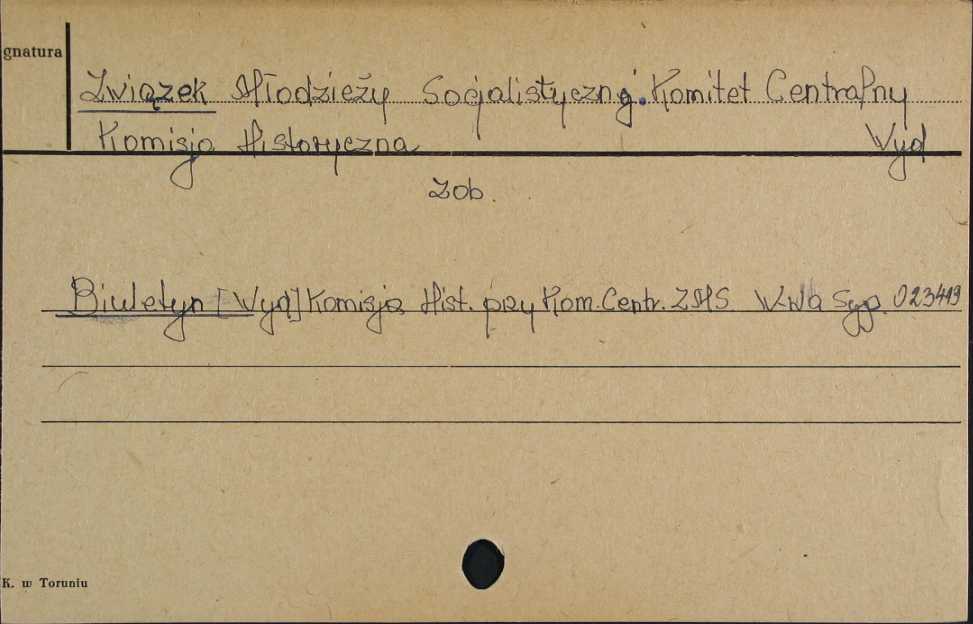 gnatura
Związek Młodzieży Socjalistycznej. Komitet Centralny
Komisja Historyczna Wyd
Zob.
Biuletyn [Wyd] Komisja Hist. przy Kom. Centr. ZMS W-wa Syg. 023419
K. w Toruniu